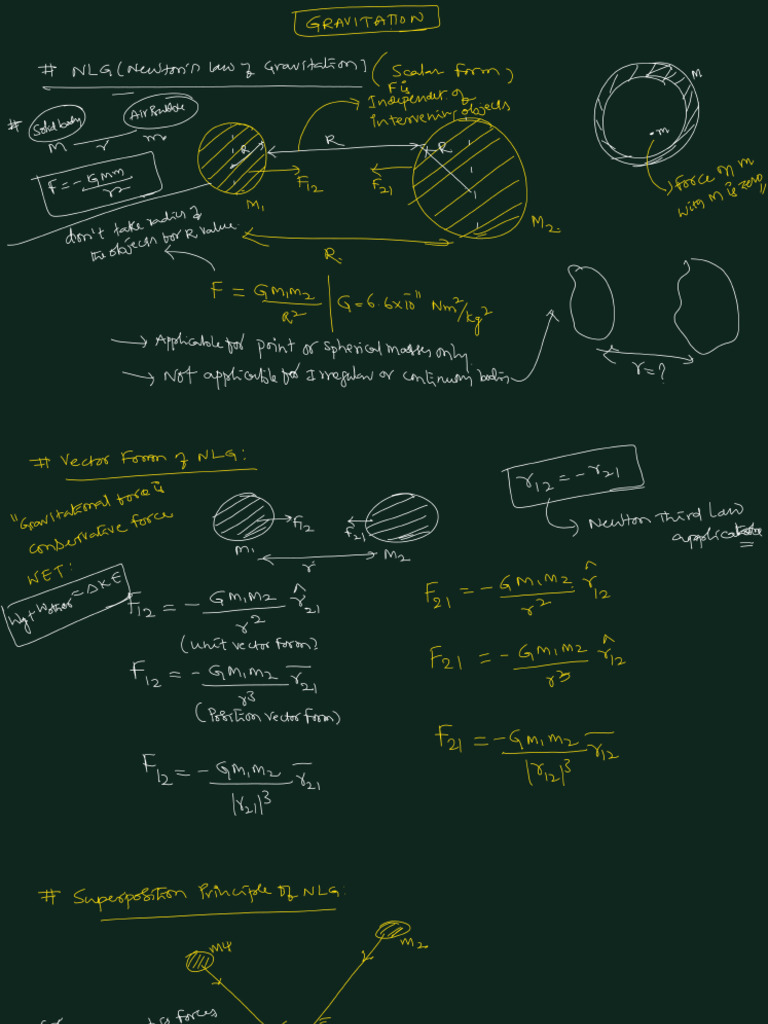 GRAVITATION
# NLG (Newton's law of Gravitation) (Scalar form)
F is
Independent of
intervening objects
# Solid body Air Bubble
M r m
F = -GMm/r²
R R R
F12 F21
M1 M2
R
M
m
Force on m
with M is zero
don't take radius of
the objects for R value
F = GM1M2/R² | G = 6.6x10^-11 Nm²/kg²
→ Applicable for point or spherical masses only
→ Not applicable for Irregular or continuous bodies
r = ?
# Vector Form of NLG:
"Gravitational force is
conservative force
WET:
Wg + Wother = ΔKE
F12 F21
M1 r M2
r12 = -r21
→ Newton Third Law
applicable
F12 = -GM1M2/r² r̂21
(Unit vector form)
F12 = -GM1M2/r³ r21
(Position vector form)
F12 = -GM1M2/|r21|³ r21
F21 = -GM1M2/r² r̂12
F21 = -GM1M2/r³ r̂12
F21 = -GM1M2/|r12|³ r12
# Superposition Principle of NLG:
m4 m2
forces